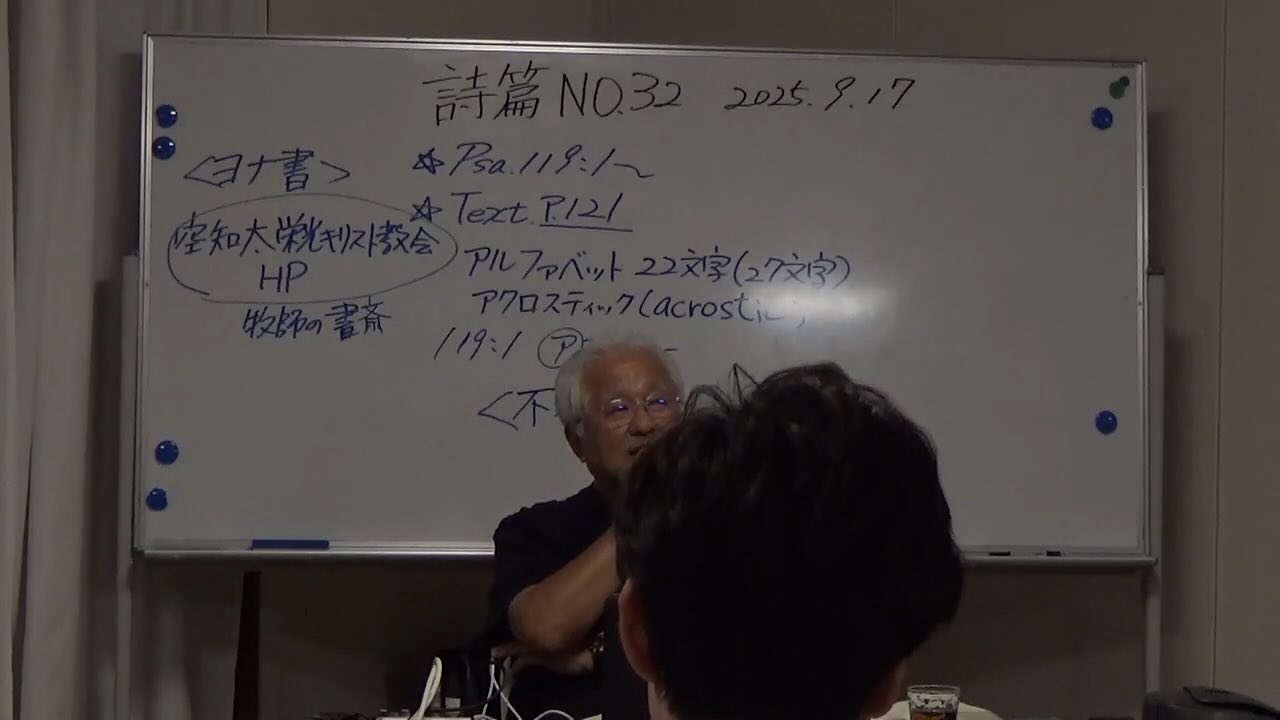 詩篇 NO.32 2025.9.17
<ヨナ書>
空知太栄光キリスト教会
HP
牧師の書斎
☆ Psa.119:1~
☆ Text. P.121
アルファベット 22文字(27文字)
アクロスティック(acrosti
119:1 ア
<不